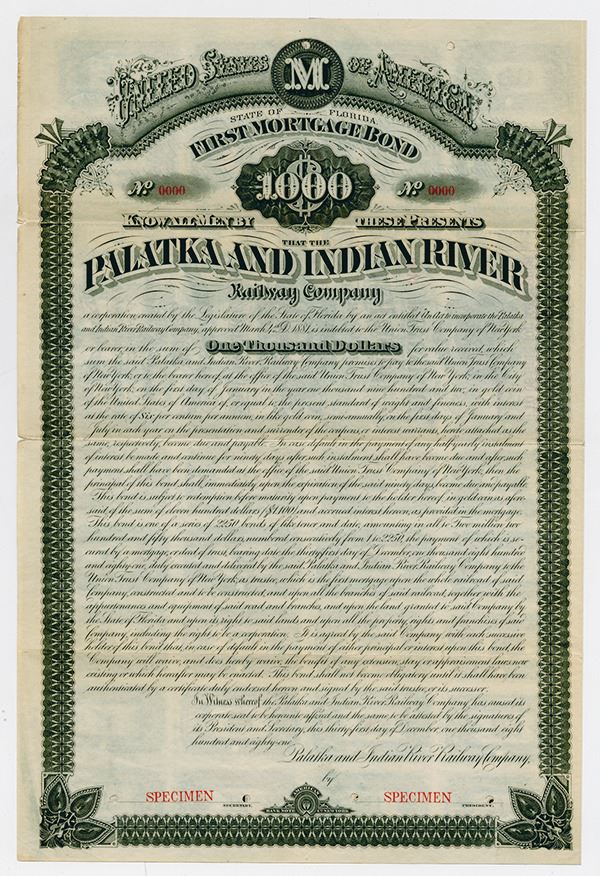 UNITED STATES OF AMERICA
M
STATE OF FLORIDA
FIRST MORTGAGE BOND
No 0000 $1000 No 0000
KNOW ALL MEN BY THESE PRESENTS
THAT THE
PALATKA AND INDIAN RIVER
Railway Company
a corporation created by the Legislature of the State of Florida by an act entitled An Act to incorporate the Palatka
and Indian River Railway Company, approved March 4th A.D. 1881, is indebted to the Union Trust Company of New York
or bearer, in the sum of One Thousand Dollars for value received, which
sum the said Palatka and Indian River Railway Company promises to pay to the said Union Trust Company
of New York, or to the bearer hereof, at the office of the said Union Trust Company of New York, in the City
of New York, on the first day of January in the year one thousand nine hundred and six, in gold coin
of the United States of America of, or equal to, the present standard of weight and fineness, with interest
at the rate of six per centum per annum, in like gold coin, semi-annually, on the first days of January and
July in each year on the presentation and surrender of the coupons, or interest warrants, hereto attached as the
same, respectively, become due and payable. In case default in the payment of any half yearly instalment
of interest be made and continue for ninety days after such instalment shall have become due and after such
payment shall have been demanded at the office of the said Union Trust Company of New York, then the
principal of this bond shall, immediately upon the expiration of the said ninety days, become due and payable.
This bond is subject to redemption before maturity upon payment to the holder hereof in gold coin as afore-
said of the sum of eleven hundred dollars ($1,100) and accrued interest hereon, as provided in the mortgage.
This bond is one of a series of 2250 bonds of like tenor and date, amounting in all to Two million two
hundred and fifty thousand dollars, numbered consecutively from 1 to 2250, the payment of which is se-
cured by a mortgage, or deed of trust, bearing date the thirty first day of December, one thousand eight hundred
and eighty-one, duly executed and delivered by the said Palatka and Indian River Railway Company to the
Union Trust Company of New York, as trustee, which is the first mortgage upon the whole railroad of said
Company, constructed and to be constructed, and upon all the branches of said railroad, together with the
appurtenances and equipment of said road and branches, and upon the land granted to said Company by
the State of Florida and upon its right to said lands and upon all the property, rights and franchises of said
Company, including the right to be a corporation. It is agreed by the said Company with each successive
holder of this bond that, in case of default in the payment of either principal or interest upon this bond, the
Company will waive, and does hereby waive, the benefit of any extension, stay or appraisement laws now
existing or which hereafter may be enacted. This bond shall not become obligatory until it shall have been
authenticated by a certificate duly endorsed hereon and signed by the said trustee, or its successor.
In Witness whereof the Palatka and Indian River Railway Company has caused its
corporate seal to be hereunto affixed and the same to be attested by the signatures of
its President and Secretary, this thirty first day of December, one thousand eight
hundred and eighty-one.
Palatka and Indian River Railway Company,
by
SPECIMEN SPECIMEN
SECRETARY. PRESIDENT.
AMERICAN
BANK NOTE CO. NEW YORK